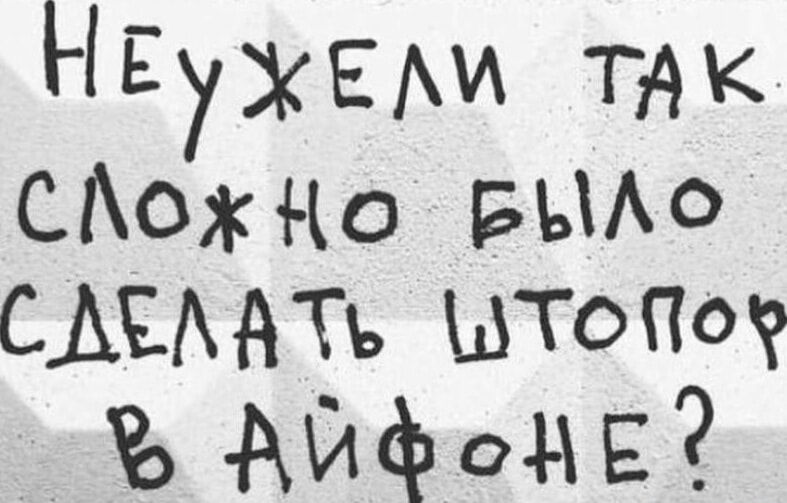 НЕУЖЕЛИ ТАК
СЛОЖНО БЫЛО
СДЕЛАТЬ ШТОПОР
В АЙФОНЕ?